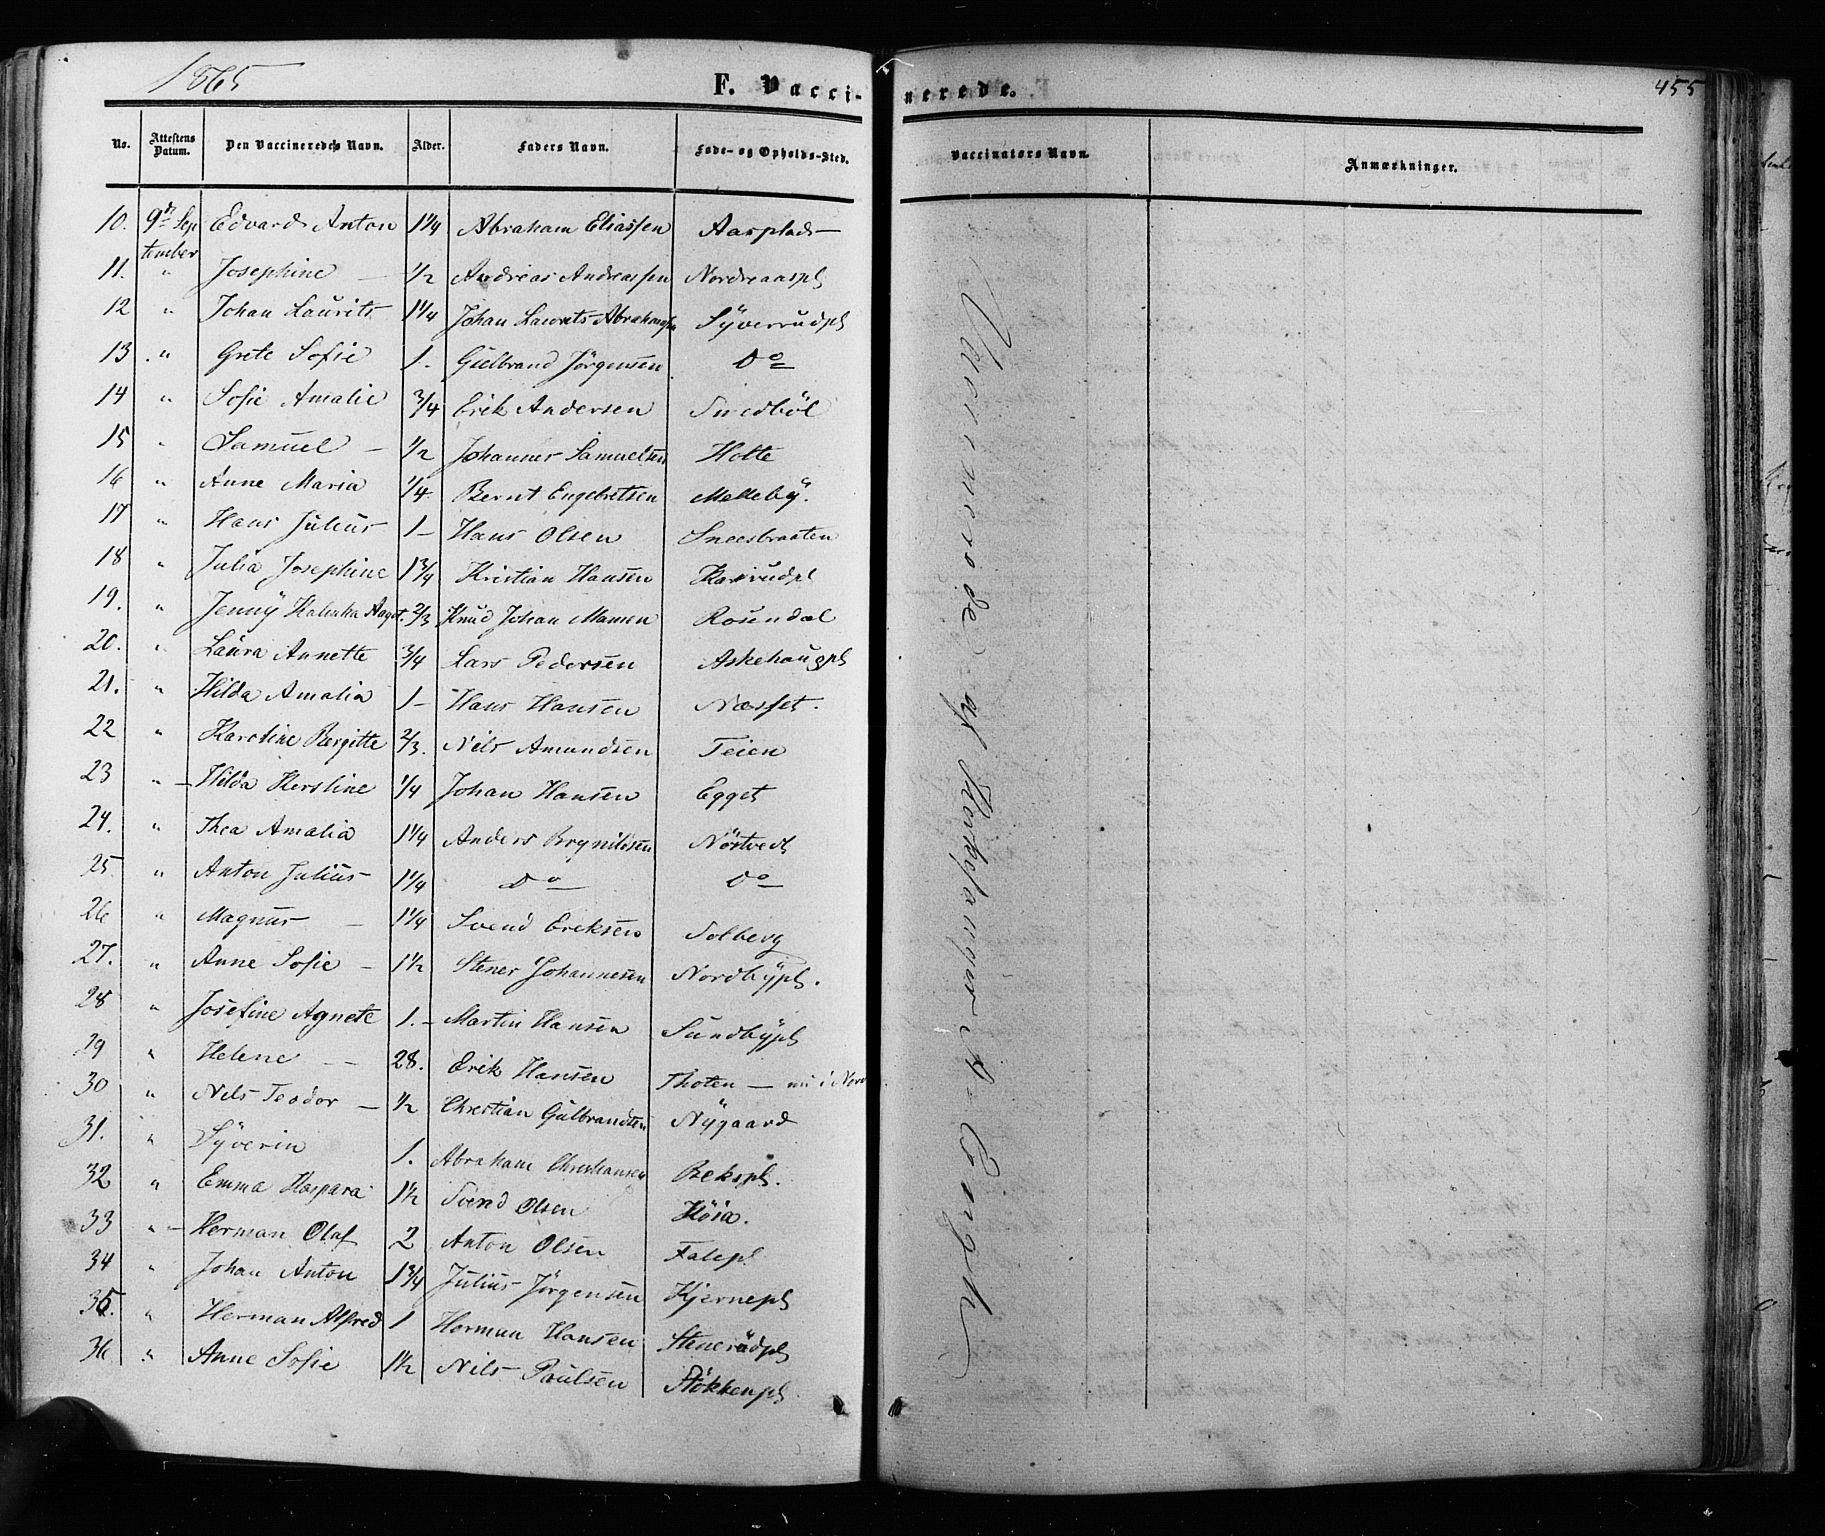 1865
F. Vacci-nerede.
455
No. Attestens Datum. Den Vaccineredes Navn. Alder. Faders Navn. Føde- og Opholds-Sted. Vaccinators Navn. Anmærkninger.
10. 9de Sep tember Edvard Anton 1 1/4 Abraham Eliassen Aasplads
11. " Josephine — 1/2 Andreas Andreassen Nordreaaspl
12 " Johan Laurits 1 1/4 Johan Laurits Abrahamsen Syverrudpl
13 " Grete Sofie 1. Gulbrand Jörgensen Do
14 " Sofie Amalie 3/4 Erik Andersen Smedböl
15 " Samuel — 1/2 Johannes Samuelsen Holte
16 " Anne Maria 1/4 Bernt Engebretsen Melleby.
17 " Hans Julius 1 — Hans Olsen Sneesbraaten
18 " Julia Josephine 1 3/4 Kristian Hansen Kasrudpl
19. " Jenny Aagot. 2/3 Knud Johan Mamen Rosendal
20. " Laura Annette 3/4 Lars Pedersen Askehaugpl
21. " Hilda Amalia 1 — Hans Hansen Næsset.
22 " Karoline Bergitte 2/3. Nils Amundsen Teien
23 " — Hilda Kerstine 1/4 Johan Hansen Egget
24. " Thea Amalia 1 1/4 Anders Brynildsen Nöstvedt
25 " Anton Julius 1 1/4 Do Do
26 " Magnus — 1 1/4 Svend Eriksen Solberg
27. " Anne Sofie — 1 1/2 Stener Johannesen Nordbypl.
28 " Josefine Agnete 1. — Martin Hansen Sundbypl
29 " Helene — 28. Erik Hansen Thoten — nu i
30 " Nils Teodor — 1/2 Christian Gulbrandsen Nygaard
31. " Syverin 1. Abraham Christiansen Bekspl.
32 " Emma Kaspara 1 1/2 Svend Olsen Höia.
33 " — Herman Olaf 2 Anton Olsen Falepl
34 " Johan Anton 1 3/4 Julius Jörgensen Kjernepl
35. " Herman Alfred 1 Herman Hansen Stenerudpl
36 " Anne Sofie 1 1/2 Nils Paulsen Stökkenpl
Vaccinerede af